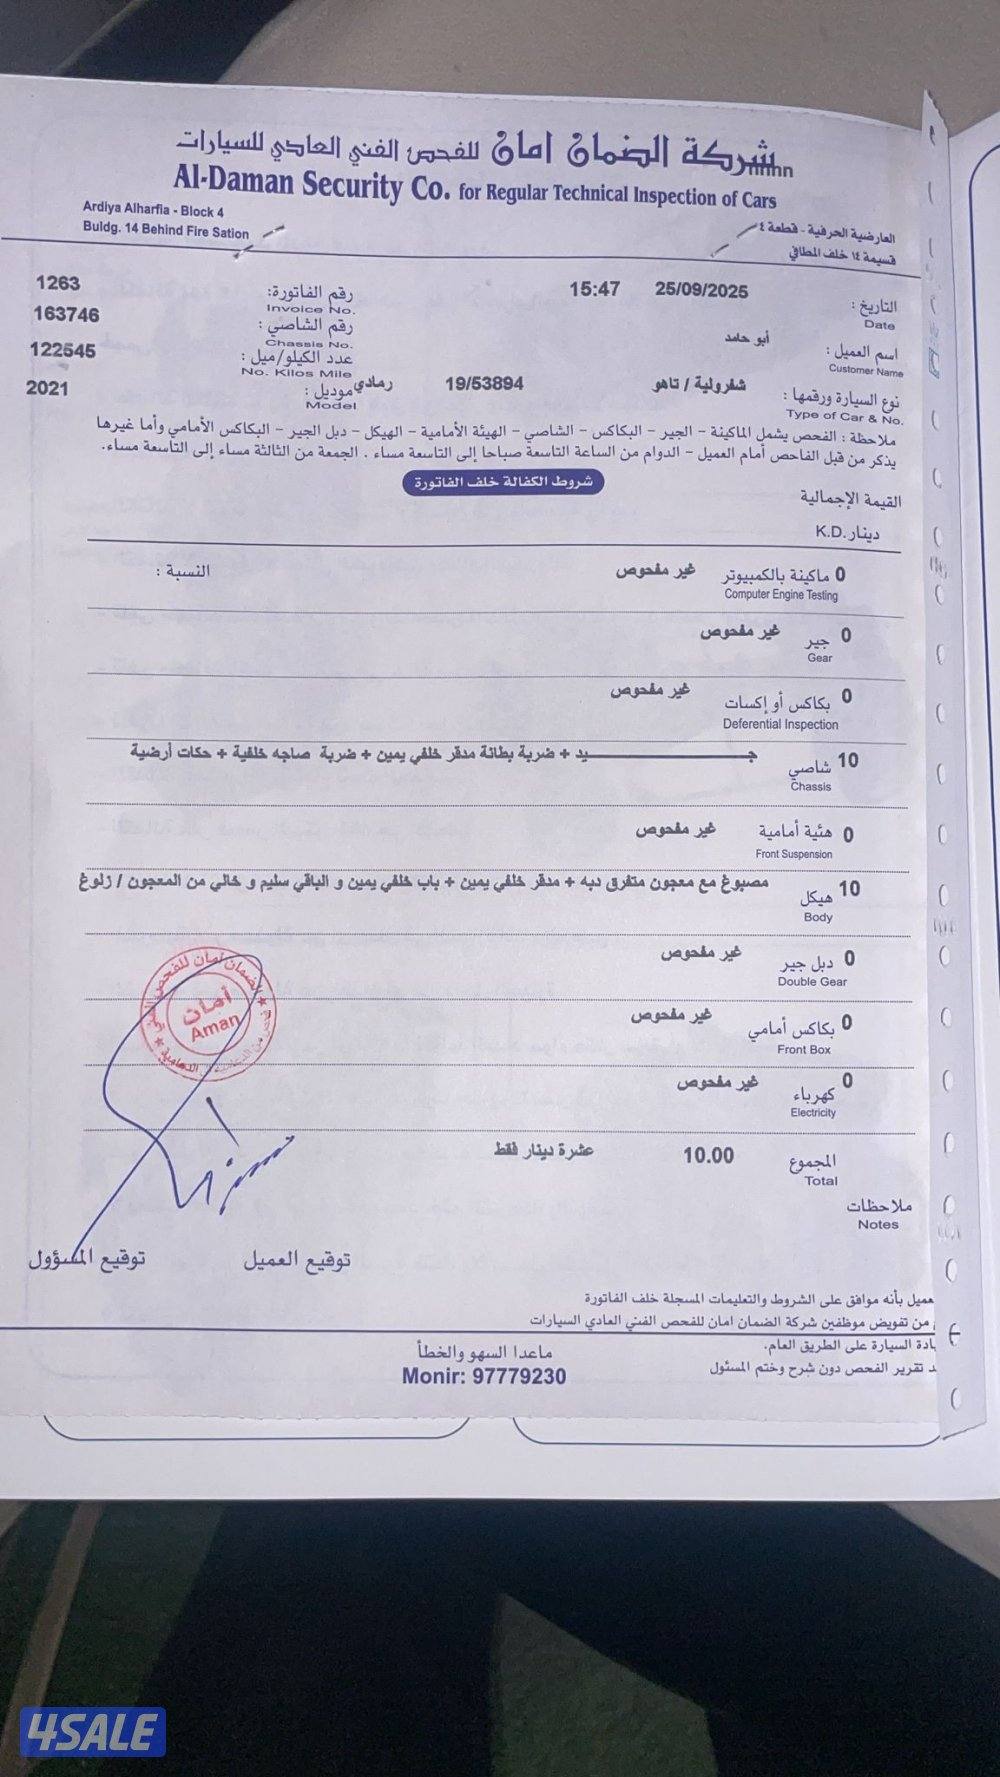 شركة الضمان امان للفحص الفني العادي للسيارات
Al-Daman Security Co. for Regular Technical Inspection of Cars
Ardiya Alharfia - Block 4
Buldg. 14 Behind Fire Sation
العارضية الحرفية - قطعة ٤
قسيمة ١٤ خلف المطافي
التاريخ : 25/09/2025 15:47
Date
رقم الفاتورة: 1263
Invoice No.
رقم الشاصي : 163746
Chassis No.
اسم العميل : أبو حامد
Customer Name
عدد الكيلو/ميل : 122545
No. Kilos Mile
نوع السيارة ورقمها : شفرولية / تاهو 19/53894 رمادي
Type of Car & No.
موديل : 2021
Model
ملاحظة : الفحص يشمل الماكينة - الجير - البكاكس - الشاصي - الهيئة الأمامية - الهيكل - دبل الجير - البكاكس الأمامي وأما غيرها
يذكر من قبل الفاحص أمام العميل - الدوام من الساعة التاسعة صباحا إلى التاسعة مساء . الجمعة من الثالثة مساء إلى التاسعة مساء.
شروط الكفالة خلف الفاتورة
القيمة الإجمالية
دينار K.D.
0 ماكينة بالكمبيوتر غير مفحوص النسبة :
Computer Engine Testing
0 جير غير مفحوص
Gear
0 بكاكس أو إكسات غير مفحوص
Deferential Inspection
10 شاصي جـــــــــــــــــيد + ضربة بطانة مدقر خلفي يمين + ضربة صاجه خلفية + حكات أرضية
Chassis
0 هئية أمامية غير مفحوص
Front Suspension
10 هيكل مصبوغ مع معجون متفرق دبه + مدقر خلفي يمين + باب خلفي يمين و الباقي سليم و خالي من المعجون / زلوغ
Body
0 دبل جير غير مفحوص
Double Gear
0 بكاكس أمامي غير مفحوص
Front Box
0 كهرباء غير مفحوص
Electricity
أمان
Aman
المجموع 10.00 عشرة دينار فقط
Total
ملاحظات
Notes
توقيع العميل
توقيع المسؤول
عميل بأنه موافق على الشروط والتعليمات المسجلة خلف الفاتورة
من تفويض موظفين شركة الضمان امان للفحص الفني العادي السيارات
يادة السيارة على الطريق العام.
د تقرير الفحص دون شرح وختم المسئول
ماعدا السهو والخطأ
Monir: 97779230
4SALE